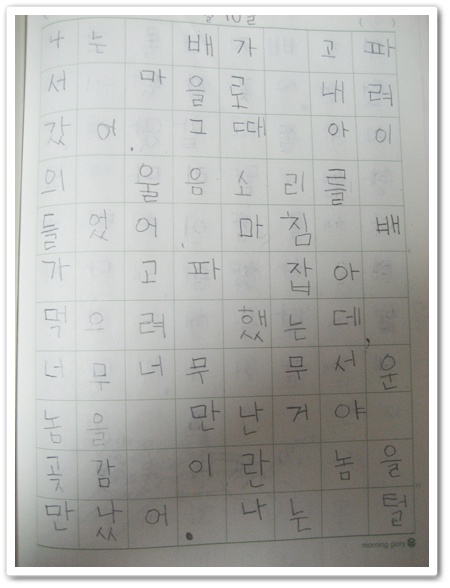 월 10일
나는 배가 고파
서 마을로 내려
갔어. 그때 아이
의 울음소리를
들었어. 마침 배
가 고파 잡아
먹으려 했는데,
너무너무 무서운
놈을 만난거야
곶감이란 놈을
만났어. 나는 털
morning glory